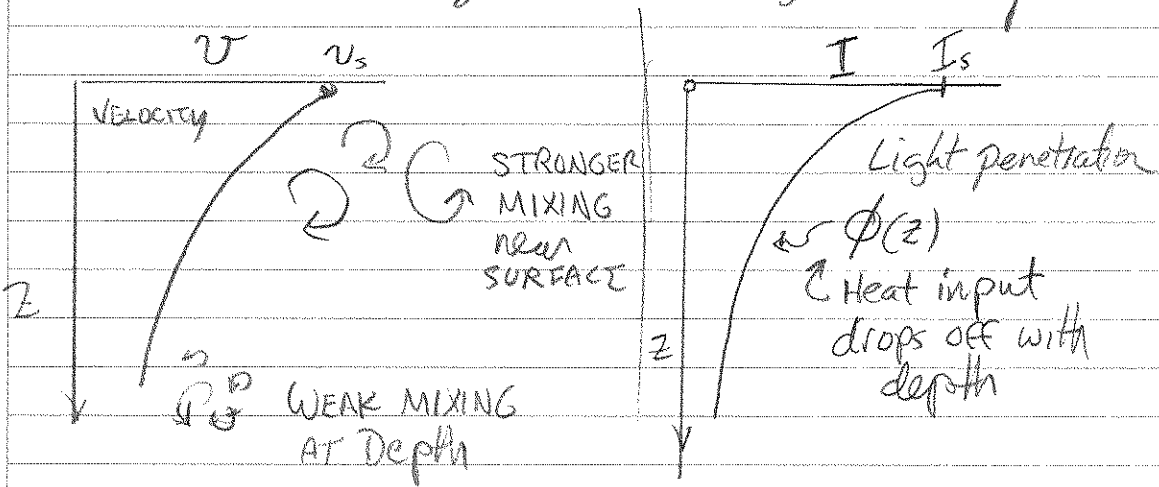 V Vs
VELOCITY
STRONGER
MIXING
near
SURFACE
Z
WEAK MIXING
AT Depth
I Is
Light penetration
ϕ(z)
Heat input
drops off with
depth
z